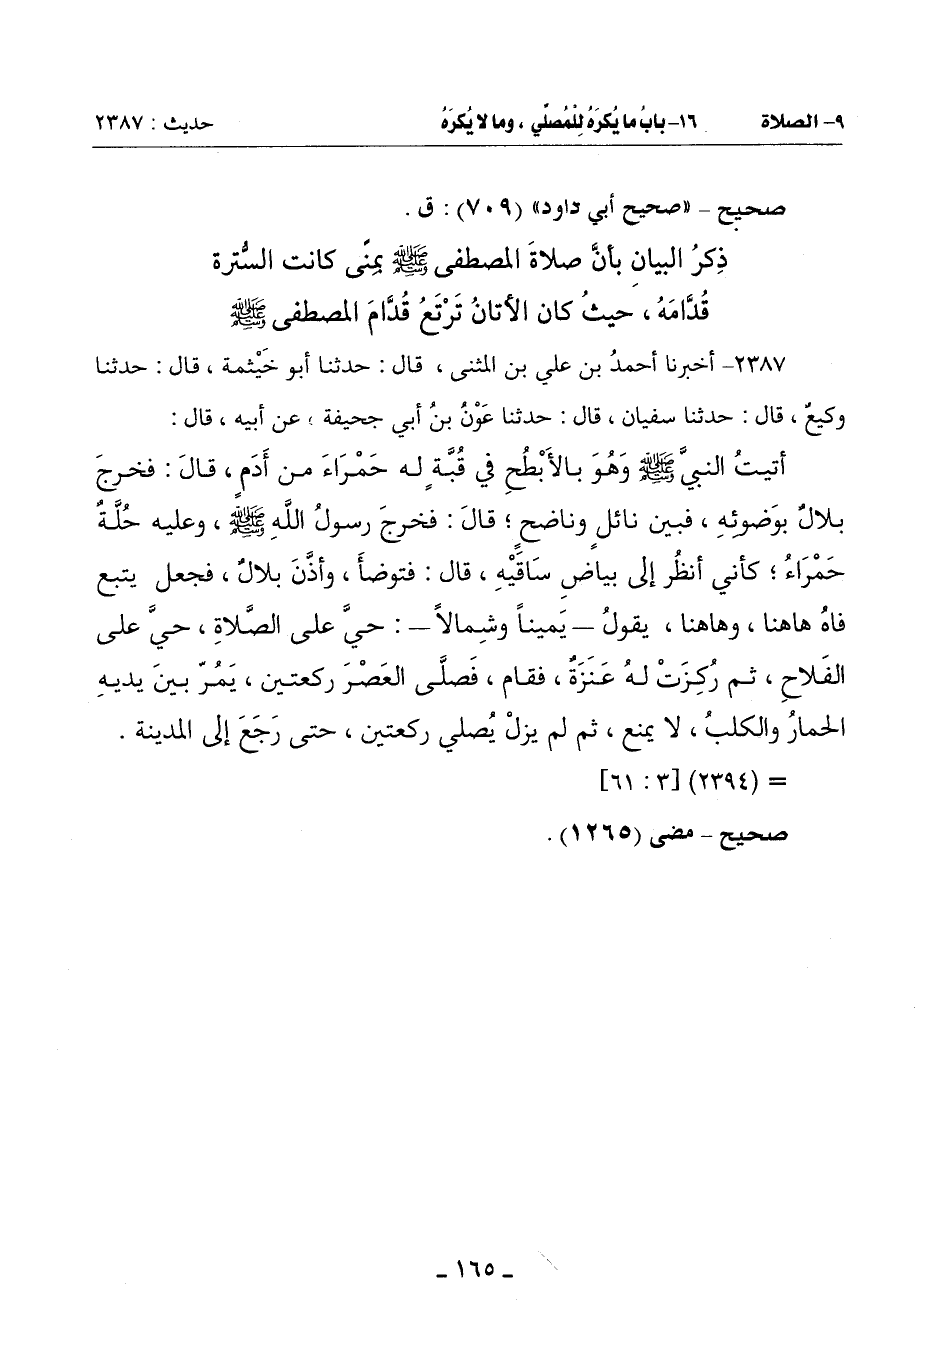 ٩- الصلاة ١٦- بابُ ما يُكرَهُ لِلْمُصَلِّي ، وما لا يُكرَهُ حديث : ٢٣٨٧
صحيح - «صحيح أبي داود» (٧٠٩) : ق .
ذِكرُ البيانِ بأنَّ صلاةَ المصطفى ﷺ بِمِنًى كانت السُّترة
قُدَّامَهُ ، حيثُ كان الأتانُ تَرْتَعُ قُدَّامَ المصطفى ﷺ
٢٣٨٧- أخبرنا أحمدُ بن علي بن المثنى ، قال : حدثنا أبو خَيْثمة ، قال : حدثنا
وكيعٌ ، قال : حدثنا سفيان ، قال : حدثنا عَوْنُ بنُ أبي جحيفة ، عن أبيه ، قال :
أتيتُ النبيَّ ﷺ وَهُوَ بالأَبْطُحِ في قُبَّةٍ له حَمْرَاءَ من أَدَمٍ ، قالَ : فخرجَ
بلالٌ بوَضوئِهِ ، فبين نائلٍ وناضحٍ ؛ قالَ : فخرجَ رسولُ اللَّهِ ﷺ ، وعليه حُلَّةٌ
حَمْرَاءُ ؛ كأني أنظُر إلى بياضِ سَاقَيْهِ ، قال : فتوضأَ ، وأذَّنَ بلالٌ ، فجعل يتبع
فاهُ هاهنا ، وهاهنا ، يقولُ — يَميناً وشِمالاً — : حيَّ على الصَّلاةِ ، حيَّ على
الفَلاحِ ، ثم رُكِزَتْ لهُ عَنَزَةٌ ، فقام ، فَصلَّى العَصْرَ ركعتين ، يَمُرّ بينَ يديهِ
الحمارُ والكلبُ ، لا يمنع ، ثم لم يزلْ يُصلي ركعتين ، حتى رَجَعَ إلى المدينة .
= (٢٣٩٤) [٣ : ٦١]
صحيح - مضى (١٢٦٥) .
- ١٦٥ -